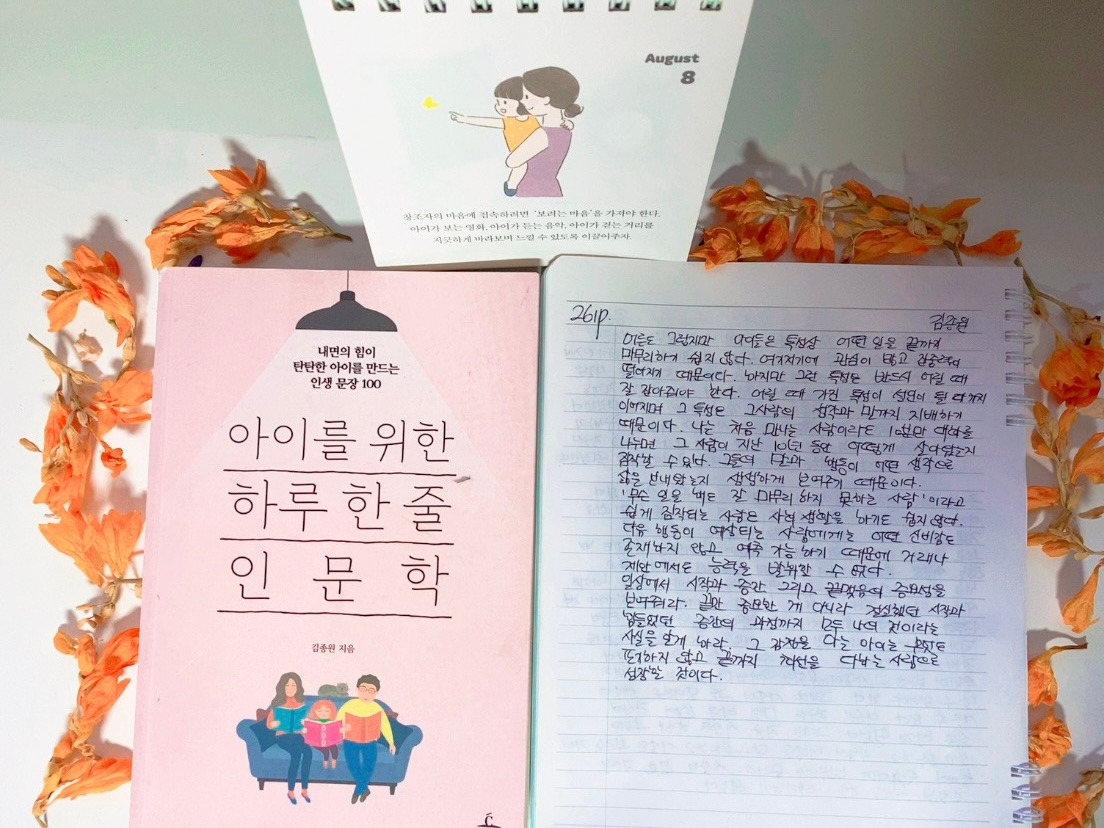 August
8
창조자의 마음에 접속하려면 '보려는 마음'을 가져야 한다.
아이가 보는 영화, 아이가 듣는 음악, 아이가 걷는 거리를
지긋하게 바라보며 느낄 수 있도록 이끌어주자.
내면의 힘이
탄탄한 아이를 만드는
인생 문장 100
아이를 위한
하루 한 줄
인문학
김종원 지음
261p.
김종원
어른도 그렇지만 아이들은 특성상 어떤 일을 끝까지
마무리하기 쉽지 않다. 여기저기에 관심이 많고 집중력이
떨어지기 때문이다. 하지만 그런 특성은 반드시 어릴 때
잘 잡아줘야 한다. 어릴 때 가진 특성이 성인이 될 때까지
이어지며 그 특성은 그사람의 생각과 말까지 지배하기
때문이다. 나는 처음 만나는 사람이라도 10분만 대화를
나누면 그 사람이 지난 10년 동안 어떻게 살아왔는지
짐작할 수 있다. 그들의 말과 행동이 어떤 생각으로
삶을 보내왔는지 생생하게 보여주기 때문이다.
'무슨 일을 해도 잘 마무리 하지 못하는 사람'이라고
쉽게 짐작되는 사람은 사회 생활을 하기도 쉽지 않다.
다음 행동이 예상되는 사람에게는 어떤 신비감도
존재하지 않고 예측 가능하기 때문에 거래나
제안에서도 능력을 발휘할 수 없다.
일상에서 시작과 중간 그리고 끝맺음의 중요성을
보여줘라. 끝만 중요한 게 아니라 정성했던 시작과
힘들었던 중간의 과정까지 모두 나의 것이라는
사실을 알게 하라. 그 감정을 아는 아이는 무엇도
포기하지 않고 끝까지 최선을 다하는 사람으로
성장할 것이다.